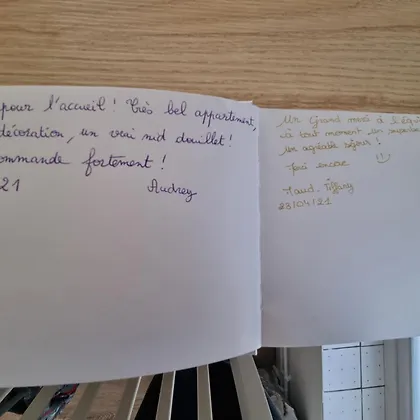 pour l'accueil ! Très bel appartement,
décoration, un vrai nid douillet !
ommande fortement !
21
Audrey
Un Grand merci à l'équ
à tout moment
Un agréable séjour !
encore
Maud. Tiffany
23/04/21